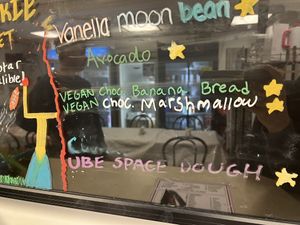 KIE
Vanella moon bean
ET
Avocado
tar
dible!
VEGAN Choc. Banana Bread
VEGAN Choc. Marshmallow
UBE SPACE DOUGH